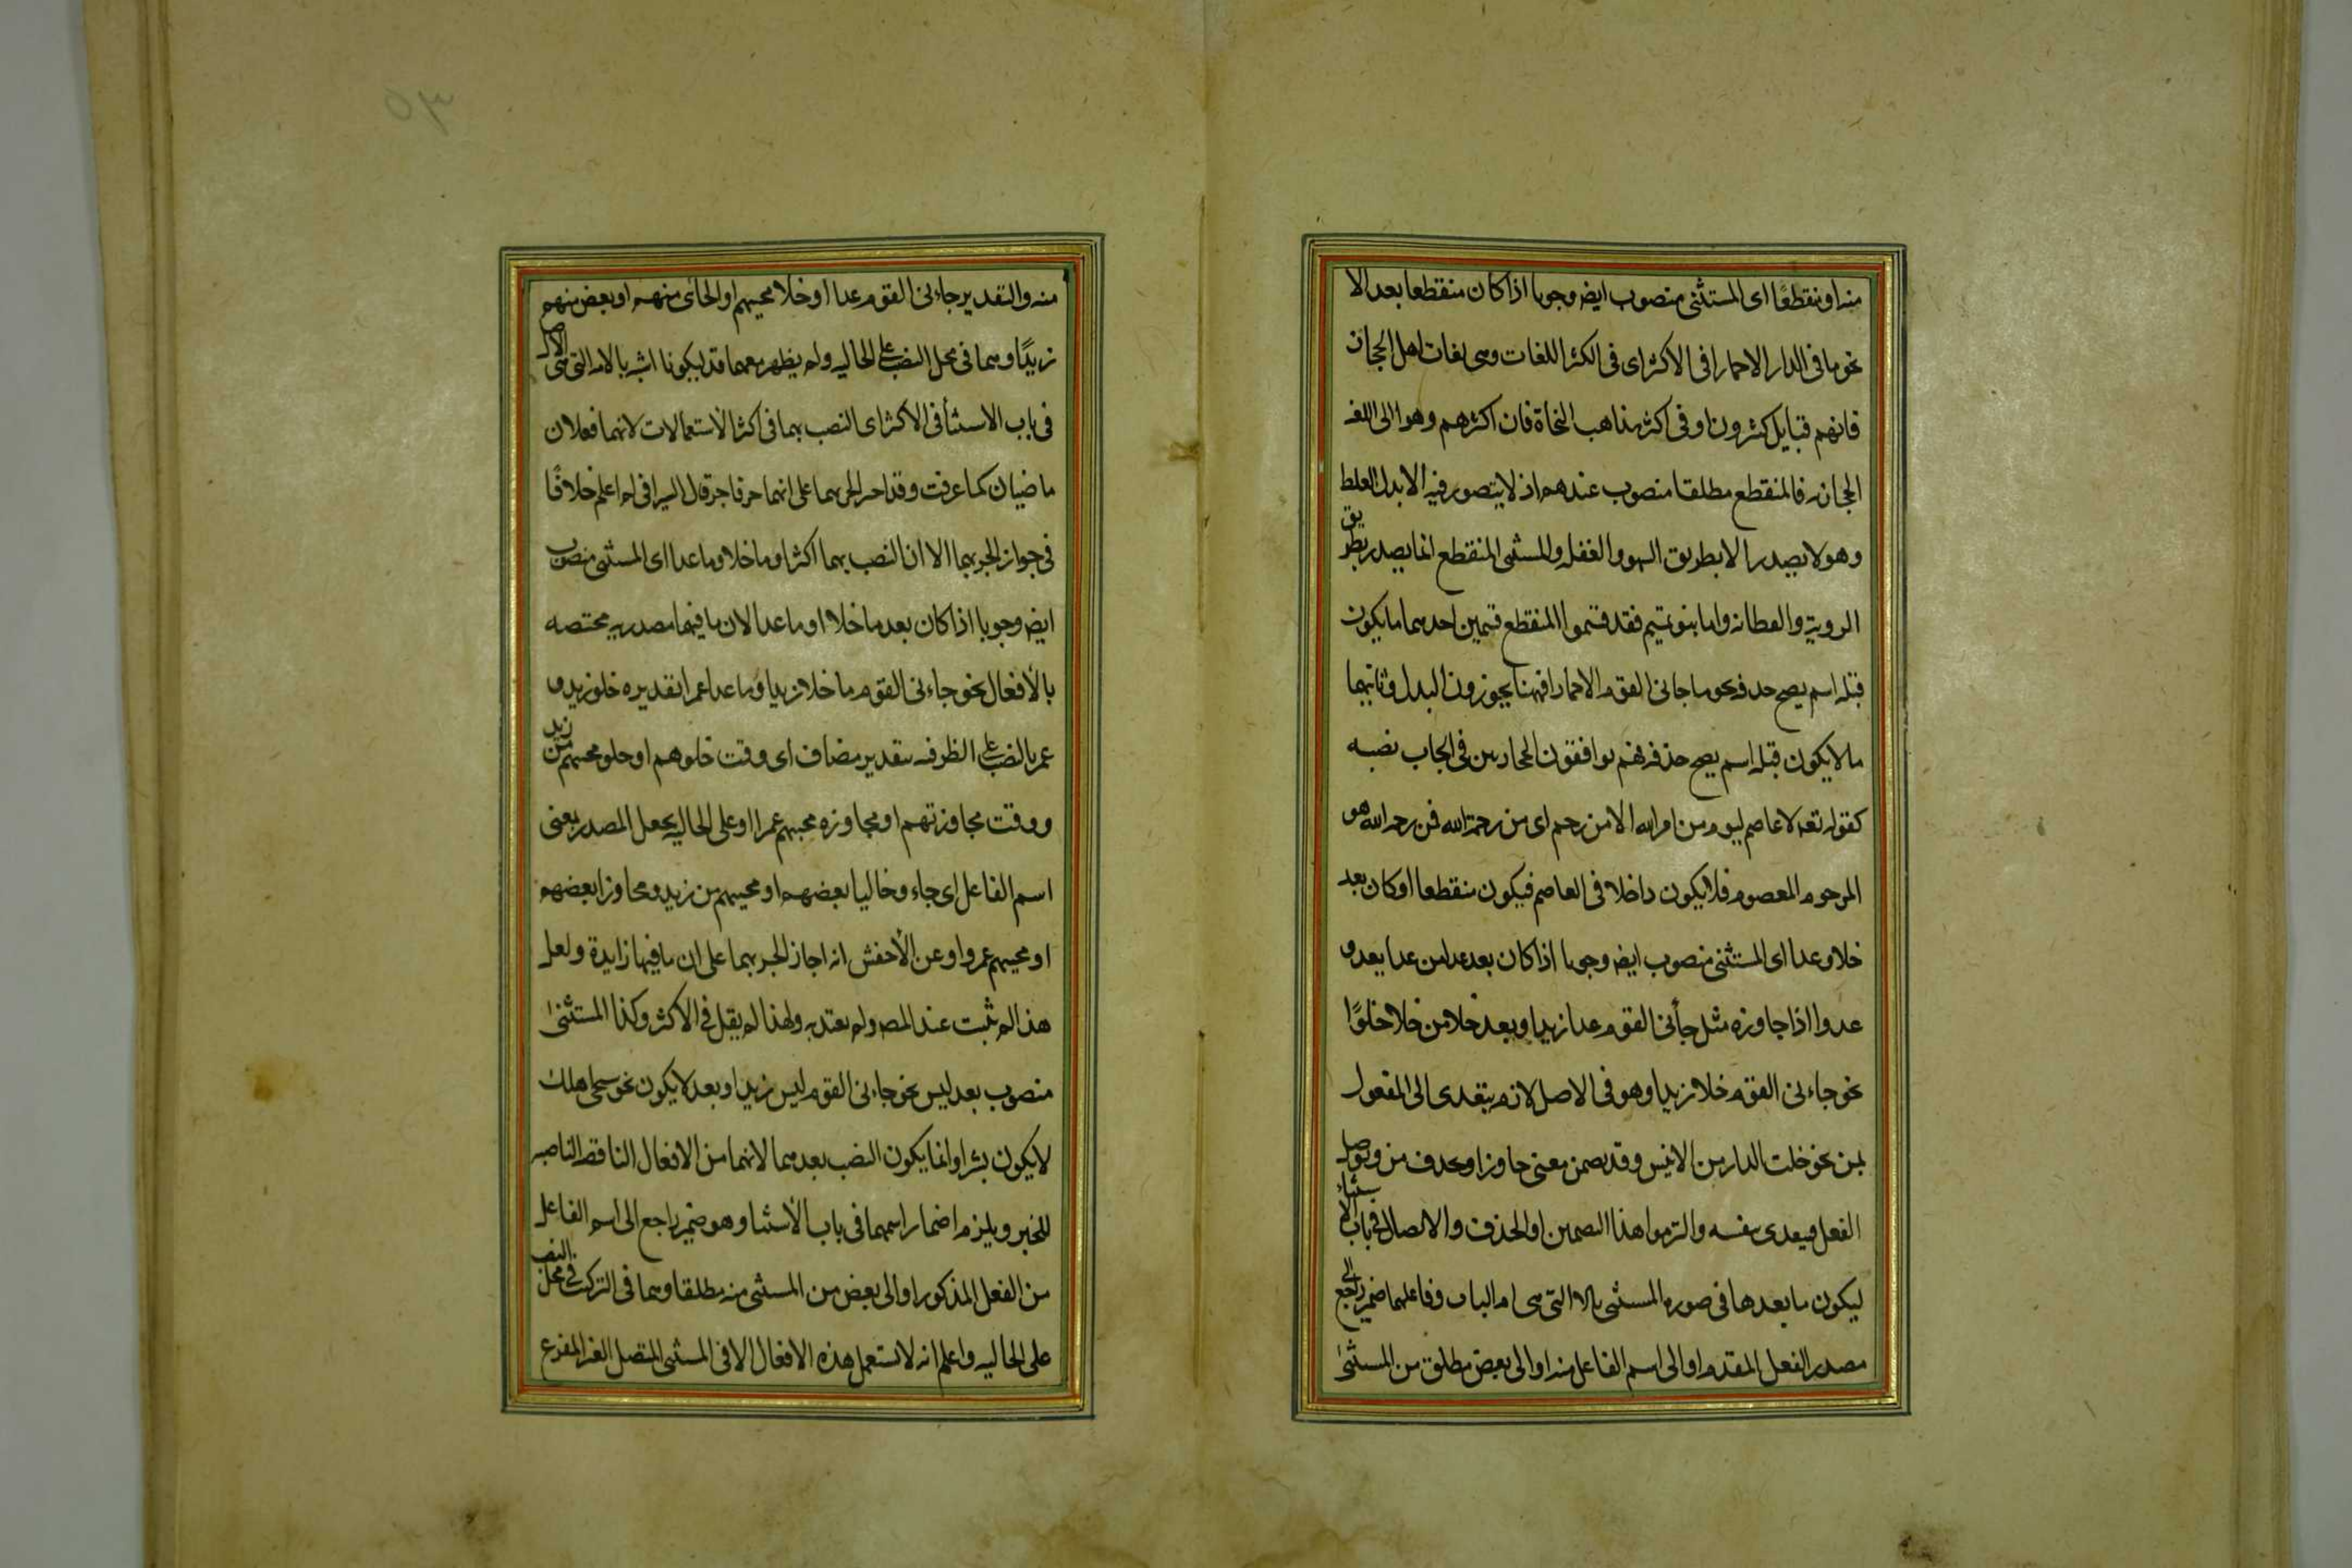 منه او منقطعًا اى المستثنى منصوب ايض وجوبا اذا كان منقطعا بعد الا
نحو ما فى الدار الا حمارا فى الاكثر اى فى اكثر اللغات وهى لغات اهل الحجاز
فانهم قبايل كثيرون او فى اكثر مذاهب النحاة فان اكثرهم وهوا الى اللغه
الحجازيه فالمنقطع مطلقا منصوب عندهم اذ لا يتصور فيه الا بدل الغلط
وهو لا يصدر الا بطريق السهو والغفله والمستثنى المنقطع انما يصدر بطريق
الرويّه والفطانه واما بنو تميم فقد قسموا المنقطع قسمين احدهما ما يكون
قبله اسم يصح حذفه نحو ما جانى القوم الا حمارا فههنا يجوزون البدل وثانيهما
ما لا يكون قبله اسم يصح حذفه فهم يوافقون الحجازيين فى ايجاب نصبه
كقوله تعه لا عاصم اليوم من امر الله الا من رحم اى من رحمة الله فمن رحمه الله هو
المرحوم المعصوم فلا يكون داخلا فى العاصم فيكون منقطعا او كان بعد
خلا وعدا اى المستثنى منصوب ايض وجوبا اذا كان بعد عدا من عدا يعدو
عدوا اذا جاوزه مثل جأنى القوم عدا زيدا وبعد خلا من خلا خلوًا
نحو جاءنى القوم خلا زيدا وهو فى الاصل لازم يتعدى الى المفعول
بمن نحو خلت الدار من الانيس وقد يضمن معنى جاوز او يحذف من ويوصل
الفعل فيعدى بنفسه والتزموا هذا التضمين او الحذف والايصال فى باب الاستثناء
ليكون ما بعدها فى صوره المستثنى بالا التى هى ام الباب وفاعلهما ضمير راجع الى
مصدر الفعل المقدم او الى اسم الفاعل منه او الى بعض مطلق من المستثنى
٥٣
منه والتقدير جاءنى القوم عدا او خلا مجيهم او الجائى منهم او بعض منهم
زيدًا وهما فى محل النصب على الحاليه ولم يظهر معهما قد ليكونا اشبه بالا التى هى الاصل
فى باب الاستثنأ فى الاكثر اى النصب بهما فى اكثر الاستعمالات لانهما فعلان
ماضيان كما عرفت وقد اجيز الجر بهما على انهما حرفا جر قال السيرافى لم اعلم خلافًا
فى جواز الجر بهما الا ان النصب بهما اكثر وما خلا وما عدا اى المستثنى منصوب
ايض وجوبا اذا كان بعد ما خلا او ما عدا لان ما فيهما مصدريه مختصه
بالأفعال نحو جاءنى القوم ما خلا زيدا وما عدا عمرا تقديره خلو زيد و
عمر بالنصب على الظرفيه بتقدير مضاف اى وقت خلوهم او خلو مجيهم من زيد
ووقت مجاوزتهم او مجاوزه مجيهم عمرا او على الحاليه بجعل المصدر بمعنى
اسم الفاعل اى جاء وخاليا بعضهم او مجيهم من زيد ومجاوزا بعضهم
او مجيهم عمروا وعن الأخفش انه اجاز الجر بهما على ان ما فيها زايدة ولعل
هذا لم يثبت عند المصه ولم يعتد به ولهذا لم يقل فى الاكثر وكذا المستثنىٰ
منصوب بعد ليس نحو جاءنى القوم ليس زيدا وبعد لا يكون نحو سيجى اهلك
لا يكون بشرا وانما يكون النصب بعدهما لانهما من الافعال الناقصه الناصبه
للخبر ويلزم اضمار اسمهما فى باب الأستثنا وهو ضمير راجع الى اسم الفاعل
من الفعل المذكور او الى بعض من المستثنى منه مطلقا وهما فى التركيب فى محل النصب
على الحاليه واعلم انه لا يستعمل هذه الافعال الا فى المستثنى المتصل الغير المفرغ